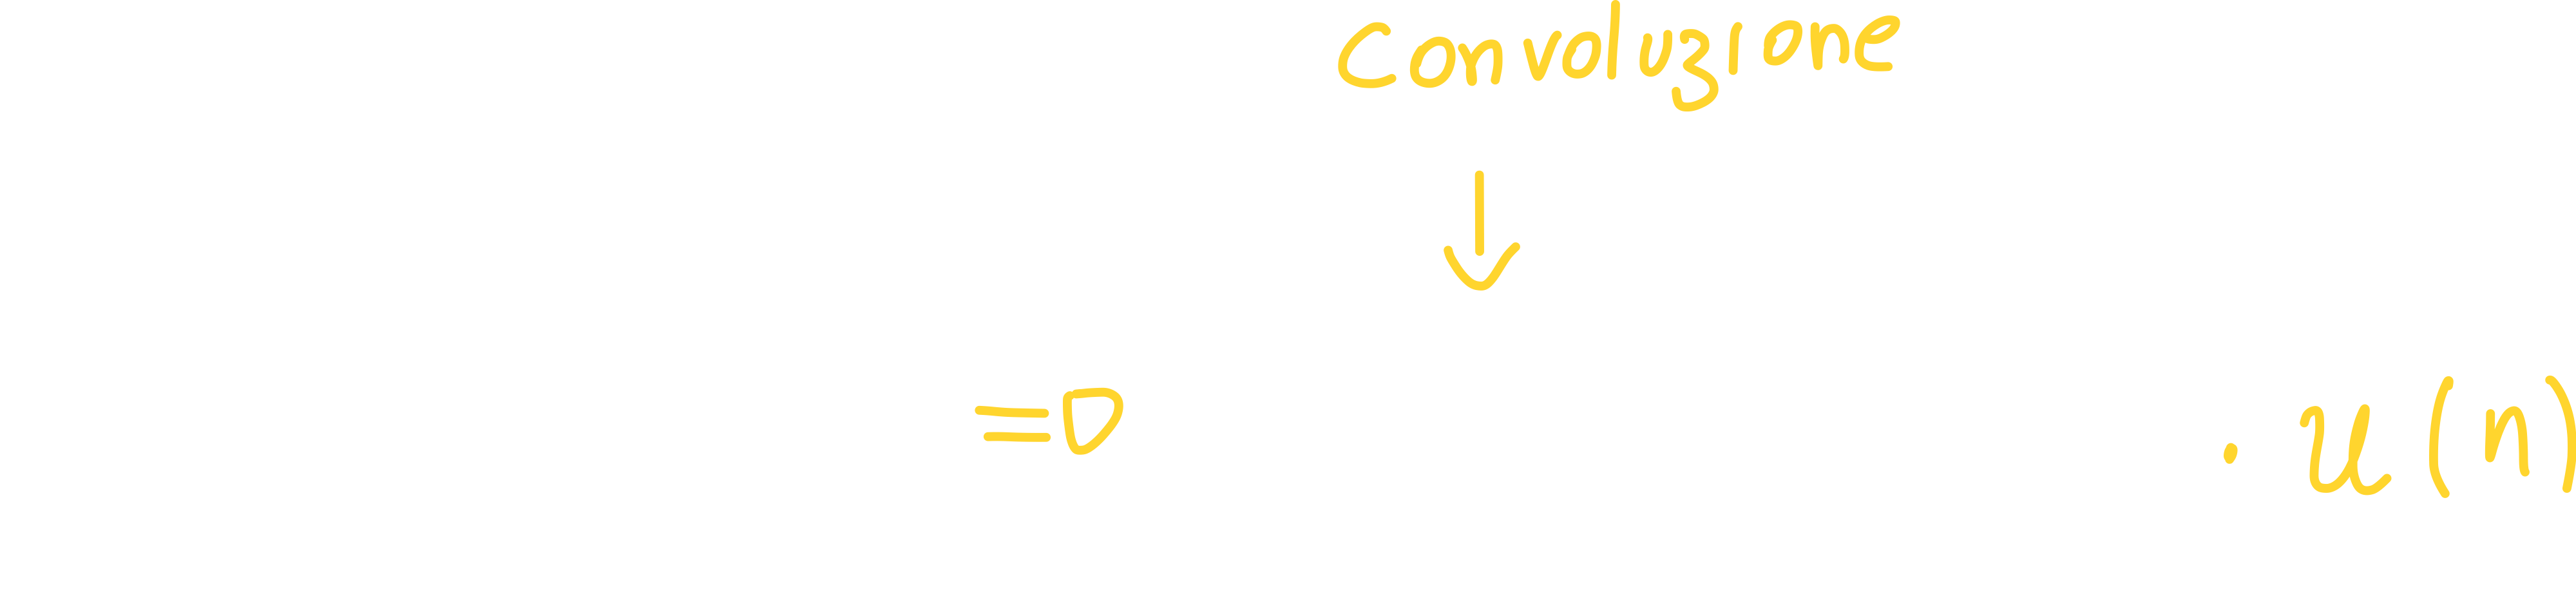 Convoluzione
↓
=D · u(n)